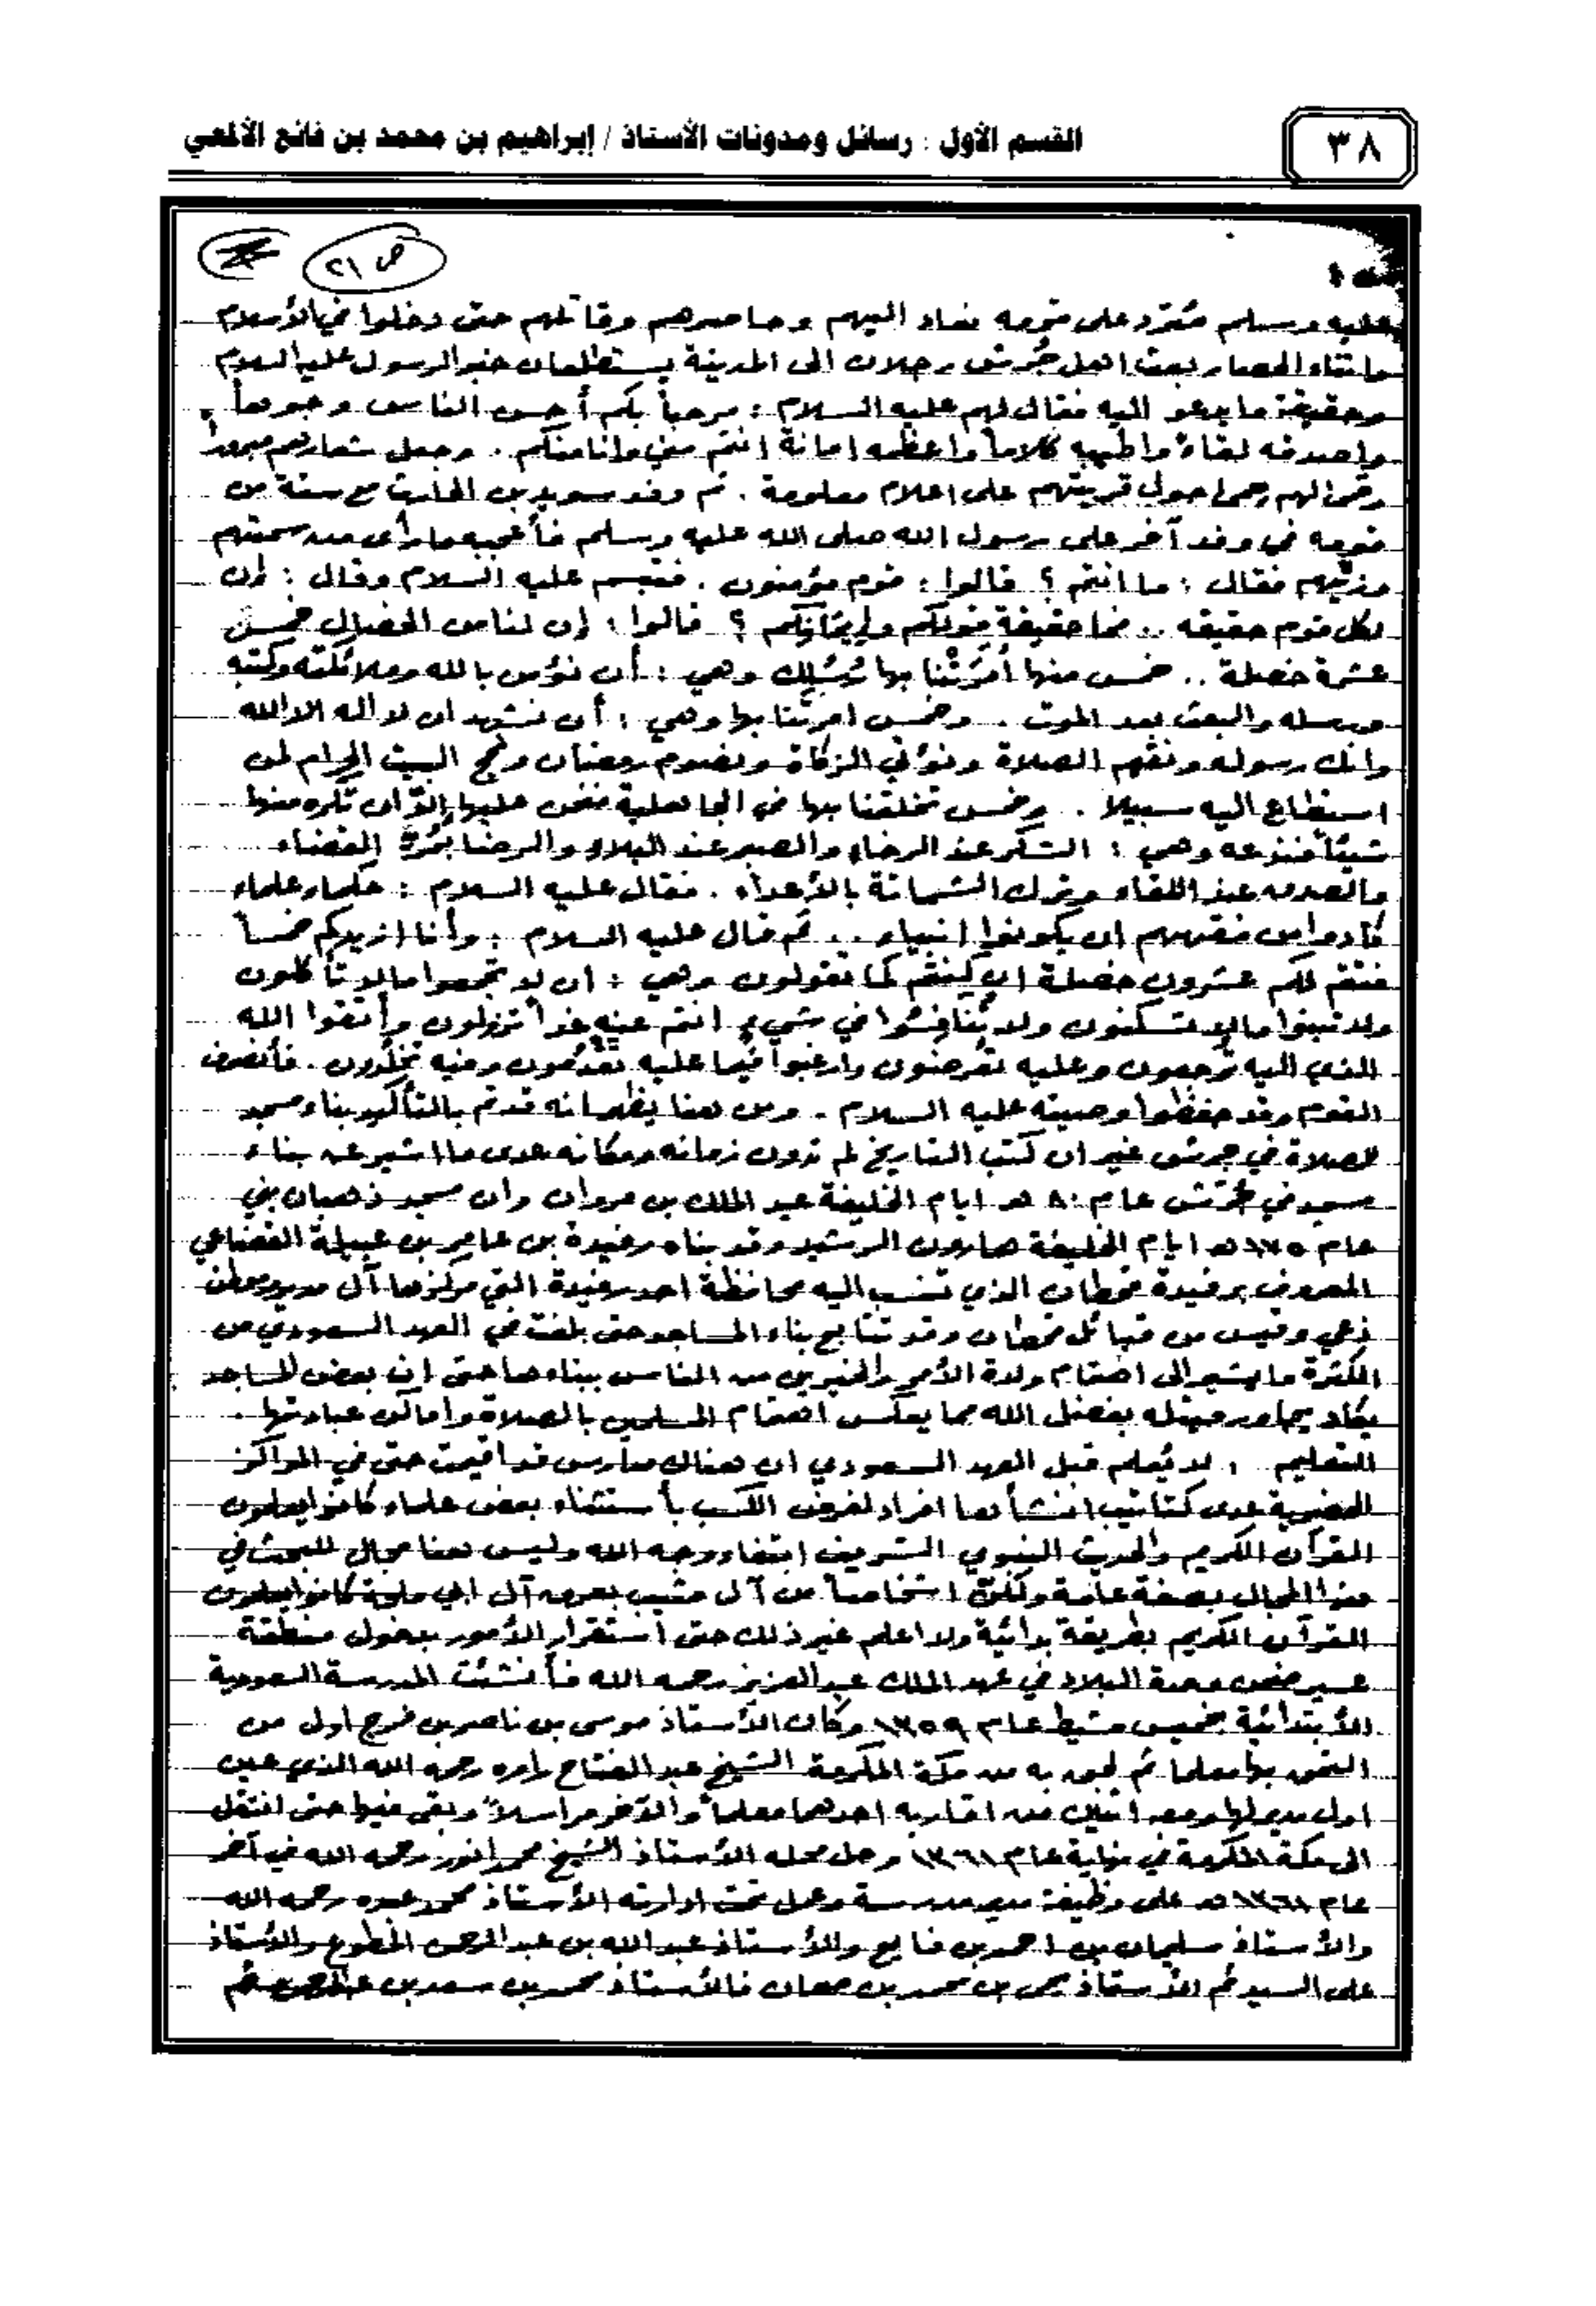 ٣٨
القسم الأول : رسائل ومدونات الأستاذ / إبراهيم بن محمد بن فائع الألمعي
ص ٢١
عليه وسلم على قومه فعاد اليهم وحاصرهم وقاتلهم حتى دخلوا في الأسلام
واثناء الحصار بعث اهل جُرش رجلان الى المدينة يستطلعان خبر الرسول عليه السلام
وحقيقة ما يدعو اليه فقال لهم عليه السلام : مرحباً بكم أحسن الناس وجوهاً
واصدقه لقاءً واطيبه كلاماً واعظمه امانة انتم مني وانا منكم . وجعل شعارهم مبروراً
وحمى لهم حمى حول قريتهم على اعلام معلومة . ثم وفد سويد بن الحارث مع ستة من
قومه في وفد آخر على رسول الله صلى الله عليه وسلم فأعجبه ما رأى من سمتهم
وزيّهم فقال : ما انتم ؟ قالوا : قوم مؤمنون . فتبسم عليه السلام وقال : إن
لكل قوم حقيقه .. فما حقيقة قولكم وإيمانكم ؟ قالوا : إن لنا من الخصال خمس
عشرة خصلة .. خمس منها أمَرَتْنا بها رُسُلك وهي : أن نؤمن بالله وملائكته وكتبه
ورسله والبعث بعد الموت . وخمس امرتنا بها وهي : أن نشهد ان لا اله الا الله
وانك رسوله ونقيم الصلاة ونؤتي الزكاة ونصوم رمضان ونحج البيت الحرام لمن
استطاع اليه سبيلا . وخمس تخلقنا بها في الجاهلية فنحن عليها إلاّ ان تكره منها
شيئاً فننزعه وهي : الشكر عند الرخاء والصبر عند البلاء والرضا بمُرّ القضاء
والصدق عند اللقاء وترك الشماتة بالأعداء . فقال عليه السلام : حكماء علماء
كادوا من فقههم ان يكونوا انبياء .. ثم قال عليه السلام : وأنا ازيدكم خمساً
فتتم لكم عشرون خصلة ان كنتم كما تقولون وهي : ان لا تجمعوا مالا تأكلون
ولا تبنوا مالا تسكنون ولا تنافسوا في شيءٍ انتم عنه غداً تزولون وأتقوا الله
الذي اليه تُرجعون وعليه تعرضون وارغبوا فيما عليه تقدمون وفيه تخلّدون . فأنصرف
القوم وقد حفظوا وصيته عليه السلام . ومن هنا يظهر انه قد تم بالتأكيد بناء مسجد
للصلاة في جرش غير ان كتب التاريخ لم تدون زمانه ومكانه عدى ما اشير عن بناء
مسجد في جُرَش عام ٨٠ هـ ايام الخليفة عبد الملك بن مروان وان مسجد ذهبان بني
عام ١٧٥ هـ ايام الخليفة هارون الرشيد وقد بناه رفيدة بن عامر بن عبيلة القضاعي
المعروف برفيدة قحطان الذي تنسب اليه محافظة احد رفيدة التي مركزها آل مدير
من قبائل قحطان وقد تتابع بناء المساجد حتى بلغت في العهد السعودي من
الكثرة ما يشير الى اهتمام ولاة الأمر والخيرين من الناس ببناءها حتى ان بعض المساجد
يكاد يجاور مثله بفضل الله مما يعكس اهتمام المسلمين بالصلاة وأماكن عبادتها .
التعليم : لا يُعلم قبل العهد السعودي ان هناك مدارس قد اقيمت حتى في المراكز
الحضرية عدى كتاتيب انشأها افراد لغرض الكسب بأستثناء بعض علماء كانوا يعلمون
القرآن الكريم والحديث النبوي الشريف ابتغاء وجه الله وليس هنا مجال للبحث في
هذا المجال بصفة عامة ولكنّ اشخاصاً من آل مشيب بعرق آل ابي ملحة كانوا يعلمون
القرآن الكريم بطريقة بدائية ولا اعلم غير ذلك حتى استقرار الأمور بدخول منطقة
عسير ضمن وحدة البلاد في عهد الملك عبدالعزيز رحمه الله فأنشئت المدرسة السعودية
الأبتدائية بخميس مشيط عام ١٣٥٩ وكان الأستاذ موسى بن ناصر بن فرج اول من
التحق بها معلما ثم لحق به من مكة المكرمة الشيخ عبد الفتاح راوه رحمه الله الذي عين
اول مدير لها ومعه اثنين من اقاربه احدهما معلماً والآخر مراسلاً وبقى فيها حتى انتقل
الى مكة المكرمة في نهاية عام ١٣٦١ وحل محله الأستاذ الشيخ محمد انور رحمه الله في آخر
عام ١٣٦١ هـ على وظيفة مدير مدرسة وعمل تحت ادارته الأستاذ محمد عبده رحمه الله
والأستاذ سليمان بن احمد بن فايع والأستاذ عبد الله بن عبدالرحمن المطوع والأستاذ
على السيد ثم الأستاذ يحي بن محمد بن فالأستاذ محمد بن سعد بن عبدالرحمن ثم